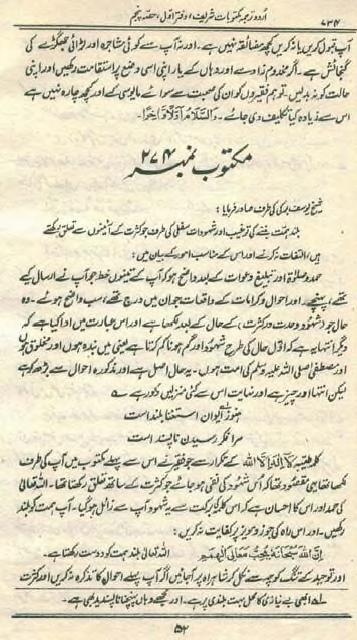 ۷۳۴ اردو ترجمہ مکتوبات شریف، دفتر اوّل، حصّہ پنجم
آپ قبول کریں یا نہ کریں کچھ مضائقہ نہیں ہے۔ اور نہ آپ سے کوئی مشاجرہ اور لڑائی جھگڑے کی
گنجائش ہے۔ اگر مخدوم زادے اور وہاں کے یار اپنی اسی وضع پر استقامت رکھیں اور اپنی
حالت کو نہ بدلیں۔ تو ہم فقیروں کو ان کی صحبت سے سوائے مایوسی کے اور کچھ چارہ نہیں ہے
اس سے زیادہ کیا تکلیف دی جائے۔ وَالسَّلَامُ اَوَّلًا وَّاٰخِرًا۔
مکتوب نمبر ۲۷۴
شیخ یوسف برکی کی طرف صادر فرمایا:
بلند ہمت بننے کی ترغیب اور شہودات سفلی کی طرف جو کثرت کے آئینوں سے تعلق رکھتے
ہیں، التفات نہ کرنے اور اس کے مناسب امور کے بیان میں:
حمد و صلوٰۃ اور تبلیغ دعوات کے بعد واضح ہو کہ آپ کے تینوں خط جو آپ نے ارسال کیے
تھے، پہنچے۔ اور احوال و کرامات کے واقعات جو ان میں درج تھے، سب واضح ہوئے۔ وہ
حال جو (شہود و حدت در کثرت) کے حال کے بعد لکھا ہے اور اس عبارت میں ادا کیا ہے کہ
دیگر انتہا یہ ہے کہ اوّل حال کی طرح شہود اور گم ہونا گم کرتا ہے یعنی میں بندہ ہوں اور مخلوق ہوں
اور مصطفٰی صلی اللہ علیہ وسلم کی امت ہوں۔ یہ حال اصل ہے اور مذکورہ احوال سے بڑھ کر ہے
لیکن انتہا اور چیز ہے اور نہایت اس سے کئی منزلیں دور ہے ؎
ہنوز ایوان استغنا بلند است
مرا فکر رسیدن ناپسند است
کلمہ طیّبہ لَا اِلٰہَ اِلَّا اللہ کے تکرار سے جو فقیر نے اس سے پہلے مکتوب میں آپ کی طرف
لکھا تھا یہی مقصود تھا کہ اس شہود کی نفی ہو جائے جو کثرت کے ساتھ تعلق رکھتا تھا۔ اللہ تعالٰی
کی حمد اور اس کا احسان ہے کہ اس کلمہ کی برکت سے یہ شہود آپ سے زائل ہو گیا۔ آپ ہمت کو بلند
رکھیں۔ اور اس راہ کی جوز و مویز پر کفایت نہ کریں:
اِنَّ اللہَ سُبْحَانَہٗ یُحِبُّ مَعَالِیَ الْھِمَمِ اللہ تعالٰی بلند ہمت کو دوست رکھتا ہے۔
اور توحید کے تنگ کوچہ سے نکل کر شاہراہ پر آجائیں اگر آپ پہلے احوال کا تذکرہ نہ کریں اور کثرت
؎ ابھی بے نیازی کا محل بہت بلندی پر ہے۔ اور مجھے وہاں پہنچنا ناپسندیدہ ہی ہے۔
۵۲